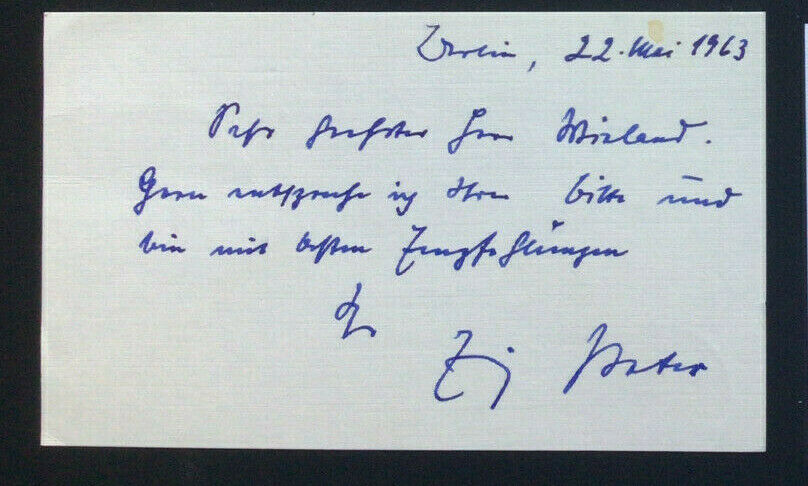 Berlin, 22. Mai 1963
Sehr geehrter Herr Wieland.
Gern entspreche ich Ihrer Bitte und
bin mit besten Empfehlungen
Ihr